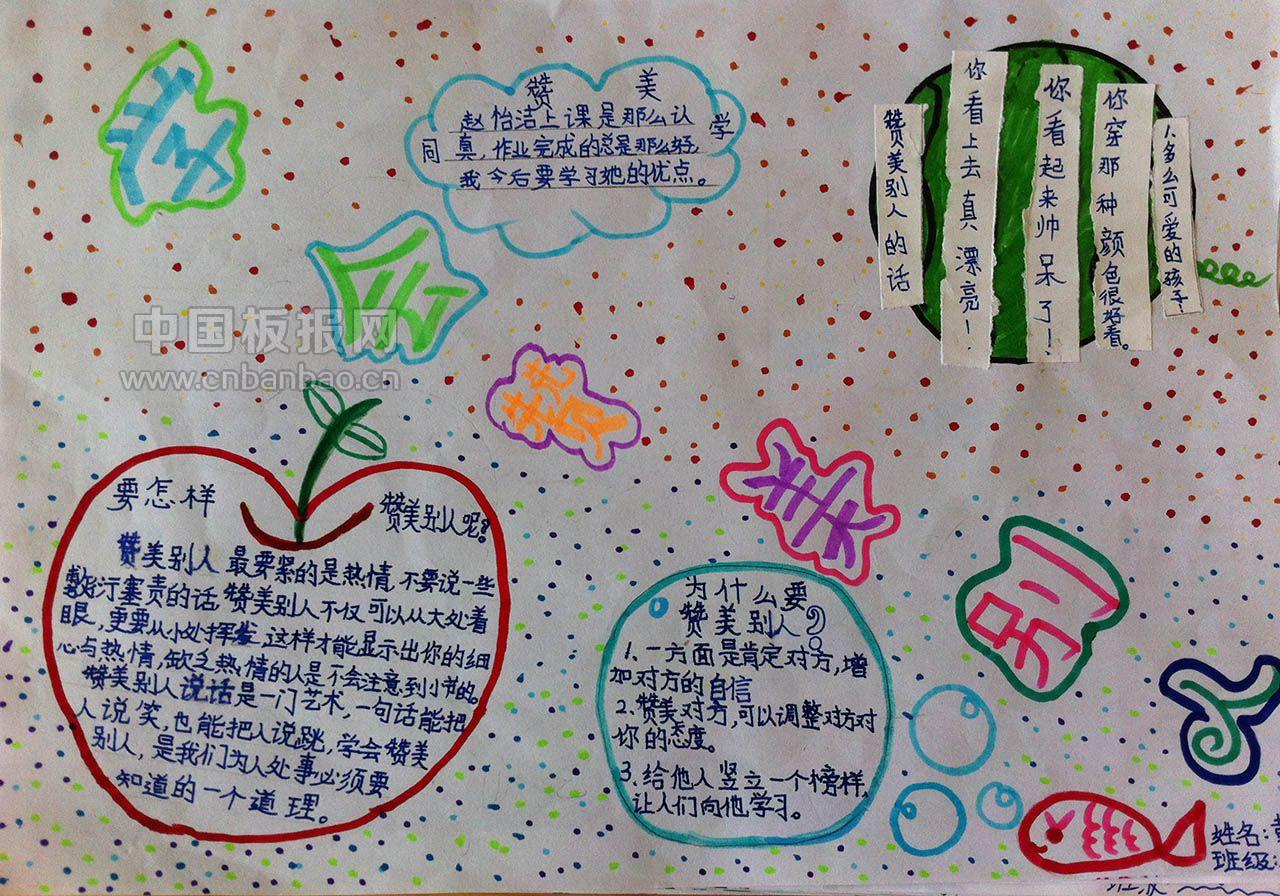 学会赞美别人
赞 美
同 学
赵怡洁上课是那么认
真,作业完成的总是那么好,
我今后要学习她的优点。
赞美别人的话
你看上去真漂亮!
你看起来帅呆了!
你穿那种颜色很好看。
1.多么可爱的孩子!
中国板报网
www.cnbanbao.cn
要怎样 赞美别人呢?
赞美别人最要紧的是热情,不要说一些
敷衍塞责的话,赞美别人不仅可以从大处着
眼,更要从小处挥发,这样才能显示出你的细
心与热情,缺乏热情的人是不会注意到小节的。
赞美别人说话是一门艺术,一句话能把
人说笑,也能把人说跳,学会赞美
别人,是我们为人处事必须要
知道的一个道理。
为什么要
赞美别人?
1、一方面是肯定对方,增
加对方的自信
2、赞美对方,可以调整对方对
你的态度。
3、给他人竖立一个榜样,
让人们向他学习。
姓名:
班级: